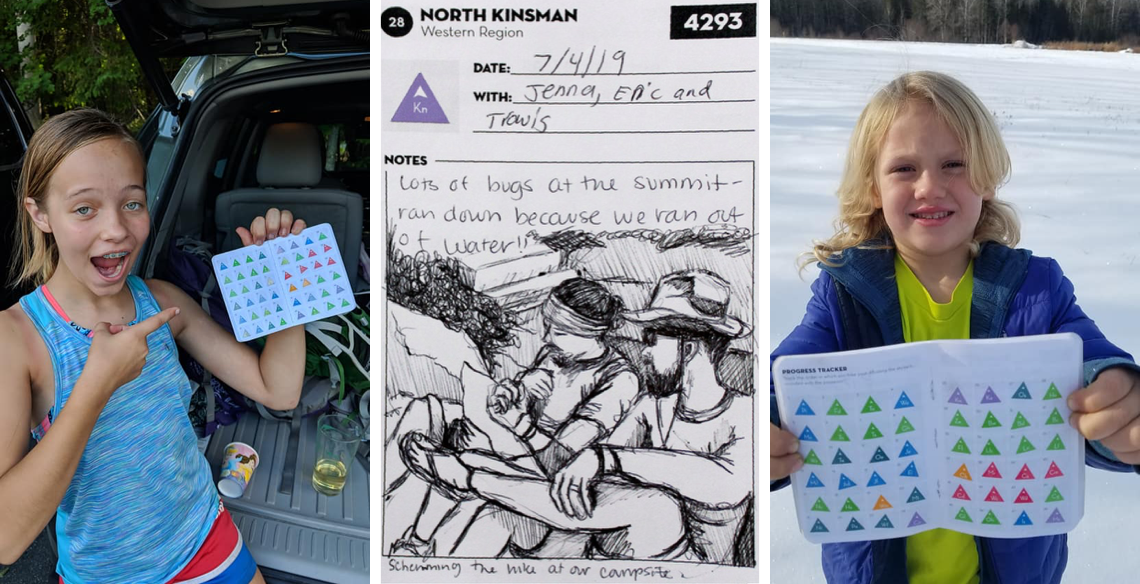 28 NORTH KINSMAN 4293
Western Region
DATE: 7/4/19
WITH: Jenna, Eric and
Travis
Kn
NOTES
Lots of bugs at the summit-
ran down because we ran out
of water!!
Schemming the hike at our campsite.
PROGRESS TRACKER